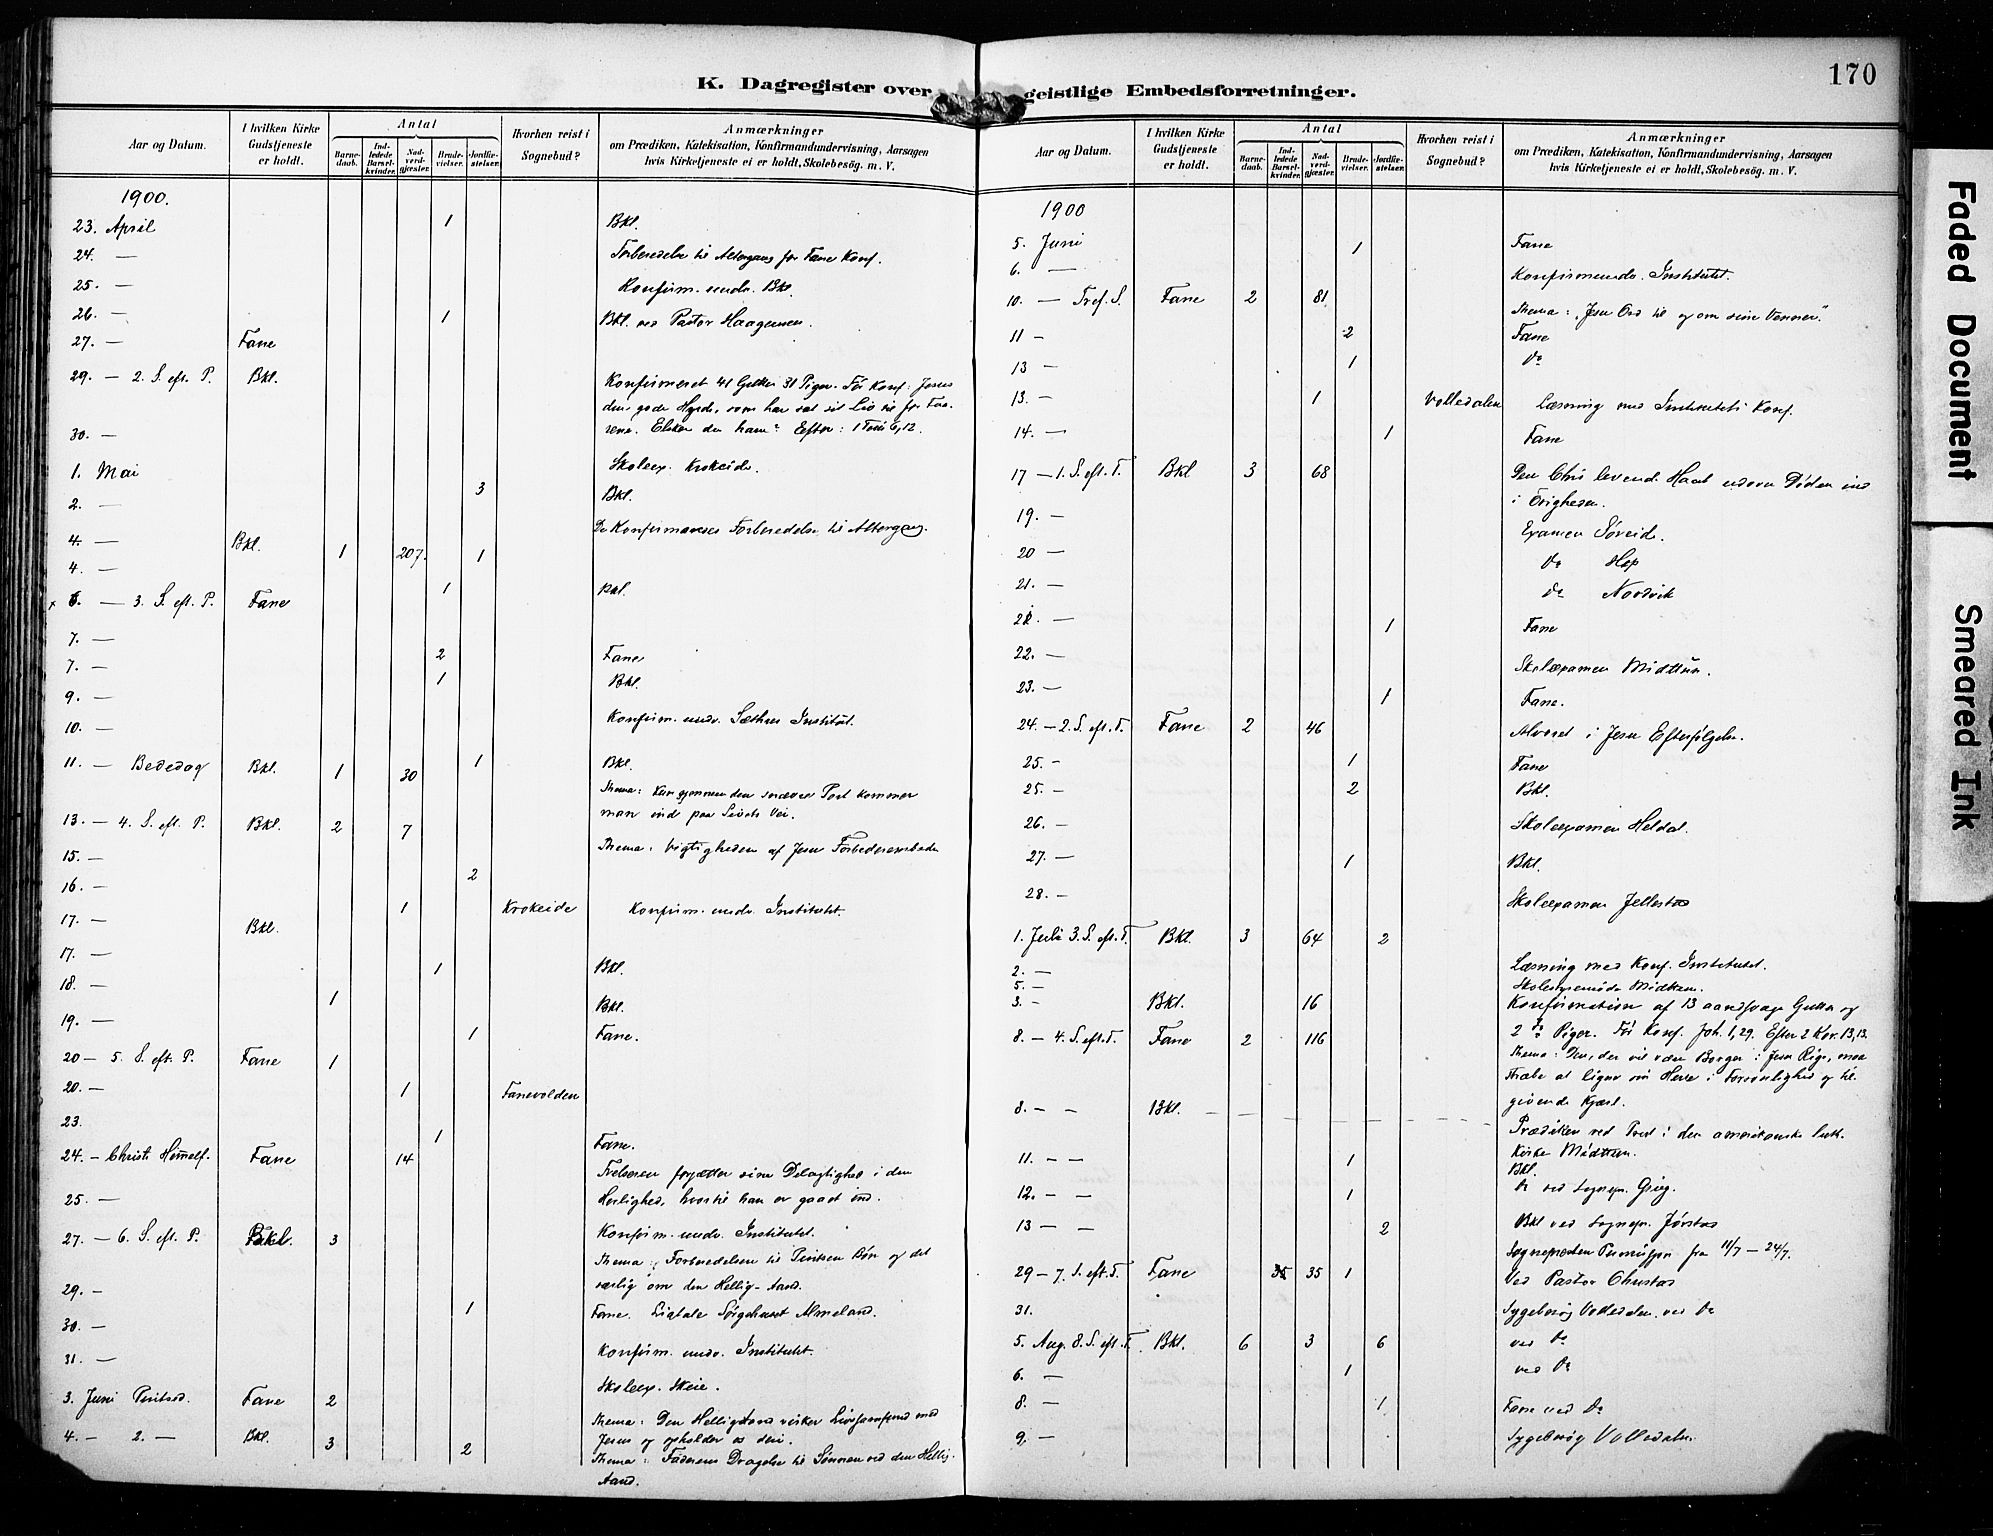 170
K. Dagregister over geistlige Embedsforretninger.
Aar og Datum. I hvilken Kirke Gudstjeneste er holdt. Antal Barnedaab. Indledede Barselkvinder. Nadverdgjæster. Brudevielser. Jordfæstelser. Hvorhen reist i Sognebud? Anmærkninger
om Prædiken, Katekisation, Konfirmandundervisning, Aarsagen
hvis Kirketjeneste ei er holdt, Skolebesøg. m. V.
1900.
23. April 1 Bkl.
24. — Forberedelse til Altergang for Fane Konf.
25. — Konfirm. underv. Bkl.
26. — 1 Bkl. ved Pastor Haagensen.
27. — Fane
29. — 2. S. eft. P. Bkl. Konfirmeret 41 Gutter 31 Piger. Før Konf: Jesus
den gode Hyrde, som har sat sit Liv til for Faa-
rene. Elsker du ham? Efter: 1 Tim 6,12.
30. — Skoleex. Krokeide.
1. Mai 3 Bkl.
2. — De Konfirmeredes Forberedelse til Altergang.
4. — Bkl. 1 207. 1
4. —
6. — 3. S. eft. P. Fane 1 Bkl.
7. — 2 Fane
7. — 1 Bkl.
9. — Konfirm. underv. Sæthres Institut.
10. — 1 Bkl.
11. — Bededag Bkl. 1 30 Thema: Kun gjennem den snævre Port kommer
man ind paa Livets Vei.
13. — 4. S. eft. P. Bkl. 2 7 Thema: Vigtigheden af Jesu Forbederembede
15. — 2
16. — 1 Krokeide Konfirm. underv. Institutet.
17. — Bkl.
17. — 1 Bkl.
18. — 1 Bkl.
19. — 1 Fane.
20 — 5. S. eft. P. Fane 1
20. — 1 Fanevolden
23. 1 Fane.
24. — Christi Himmelf. Fane 14 Frelseren forjætter sine Delagtighed i den
Herlighed, hvortil han er gaaet ind.
25. — Konfirm. underv. Institutet.
27. — 6. S. eft. P. Bkl. 3 Thema: Forberedelsen til Pintsen Bøn og det
særlig om den Hellig-Aand.
29. — 1 Fane. Ligtale Sørgehuset Almeland.
30. — Konfirm. underv. Institutet.
31. — Skoleex. Skeie.
3. Juni Pintsed. Fane 2 Thema: Den Helligaand virker Livssamfund med
Jesus og opholder os deri.
4. — 2. — Bkl. 3 2 Thema: Faderens Dragelse til Sønnen ved den Hellig-
Aand.
Aar og Datum. I hvilken Kirke Gudstjeneste er holdt. Antal Barnedaab. Indledede Barselkvinder. Nadverdgjæster. Brudevielser. Jordfæstelser. Hvorhen reist i Sognebud? Anmærkninger
om Prædiken, Katekisation, Konfirmandundervisning, Aarsagen
hvis Kirketjeneste ei er holdt, Skolebesøg. m. V.
1900
5. Juni 1 Fane
6. — Konfirmundv. Institutet.
10. — Tref. S. Fane 2 81 Thema: "Jesu Ord til og om sine Venner."
11 — 2 Fane
13 — 1 do
13. — 1 Volledalen Læsning med Institutets Konf.
14. — 1 Fane
17 — 1. S. eft. T. Bkl 3 68 Den Chris levende Haab udover Døden ind
i Evigheden.
19. — Examen Søreide.
20 — do Hop
21. — do Nordvik
21. — 1 Fane
22. — Skoleexamen Midttun.
23. — 1 Fane.
24. — 2. S. eft. T. Fane 2 46 Alvoret i Jesu Efterfølgelse.
25. — 1 Fane
25. — 2 Bkl.
26. — Skoleexamen Heldal.
27. — 1 Bkl.
28. — Skoleexamen Jellestad
1. Juli 3. S. eft. T. Bkl. 3 64 2
2. — Læsning med Konf. Institutet.
5. — Skolestyremøde Midttun.
3. — Bkl. 16 Konfirmation af 13 aandssvage Gutter og
2 do Piger. Før Konf. Joh. 1,29. Efter 2 Kor. 13,13.
8. — 4. S. eft. T. Fane 2 116 Thema: Den, der vil være Borger i Jesu Rige, maa
stræbe at ligne sin Herre i Forsonlighed og til-
givende Kjærl.
8. — — Bkl. Prædiken ved Præst i den amerikanske luth.
Kirke Midttun.
11. — — 1 Bkl.
12. — — 1 do ved Sognepr. Grieg.
13 — — 2 Bkl ved Sognepr. Jørstad
Sognepræsten fra 11/7 — 24/7.
29 — 7. S. eft. T. Fane 35 35 1 Ved Pastor Christas
31. Sygebesøg Volledalen ved do
5. Aug. 8. S. eft. T. Bkl. 6 3 6 ved do
6. — 1 ved do
8. — 1 Fane ved do
9. — Sygebesøg Volledalen
Faded Document
Smeared Ink